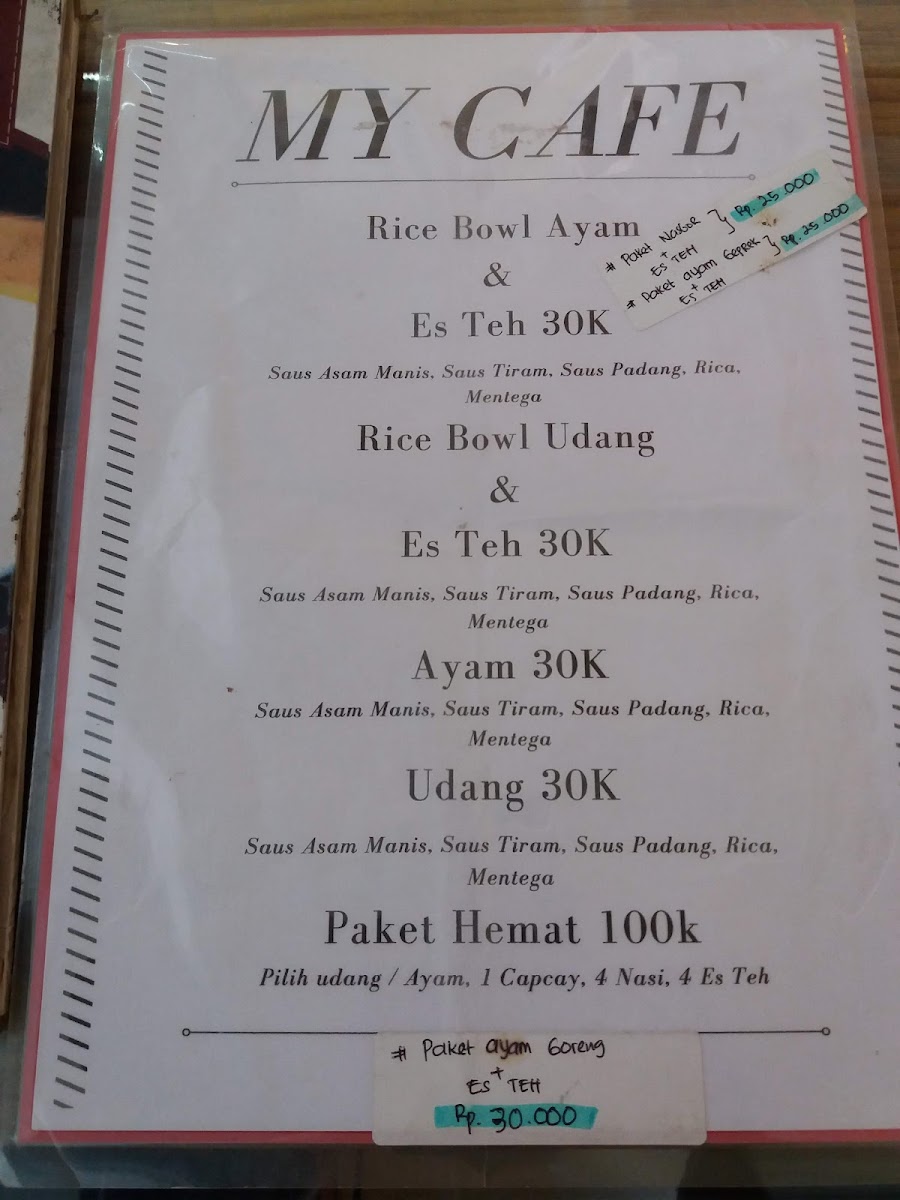 MY CAFE
# Paket NasGor } Rp. 25.000
+
Es TEH
# Paket ayam GePReK } Rp. 25.000
+
Es TEH
Rice Bowl Ayam
&
Es Teh 30K
Saus Asam Manis, Saus Tiram, Saus Padang, Rica,
Mentega
Rice Bowl Udang
&
Es Teh 30K
Saus Asam Manis, Saus Tiram, Saus Padang, Rica,
Mentega
Ayam 30K
Saus Asam Manis, Saus Tiram, Saus Padang, Rica,
Mentega
Udang 30K
Saus Asam Manis, Saus Tiram, Saus Padang, Rica,
Mentega
Paket Hemat 100k
Pilih udang / Ayam, 1 Capcay, 4 Nasi, 4 Es Teh
# Paket ayam Goreng
+
ES TEH
Rp. 30.000